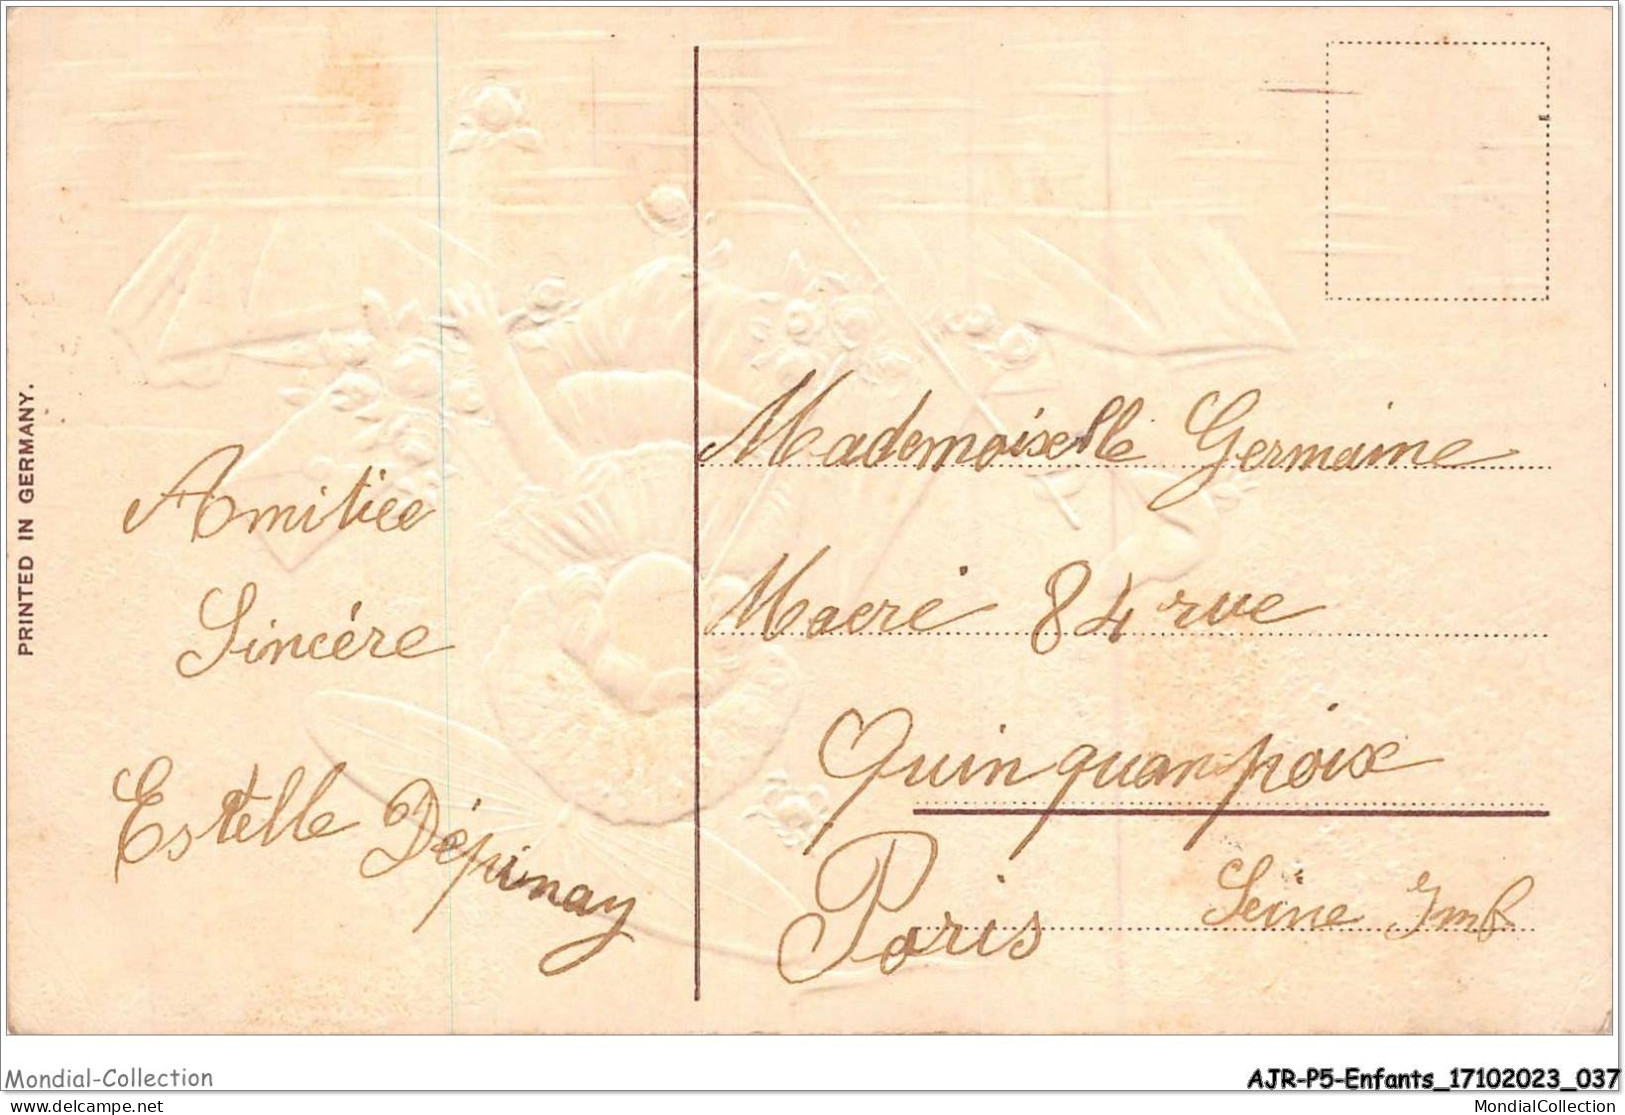 PRINTED IN GERMANY.
Amitiee
Sincére
Estelle Dépinay
Mademoiselle Germaine
Macré 84 rue
Quinquanpoix
Paris Seine Imf
Mondial-Collection
AJR-P5-Enfants_17102023_037
delcampe.net
MondialCollection